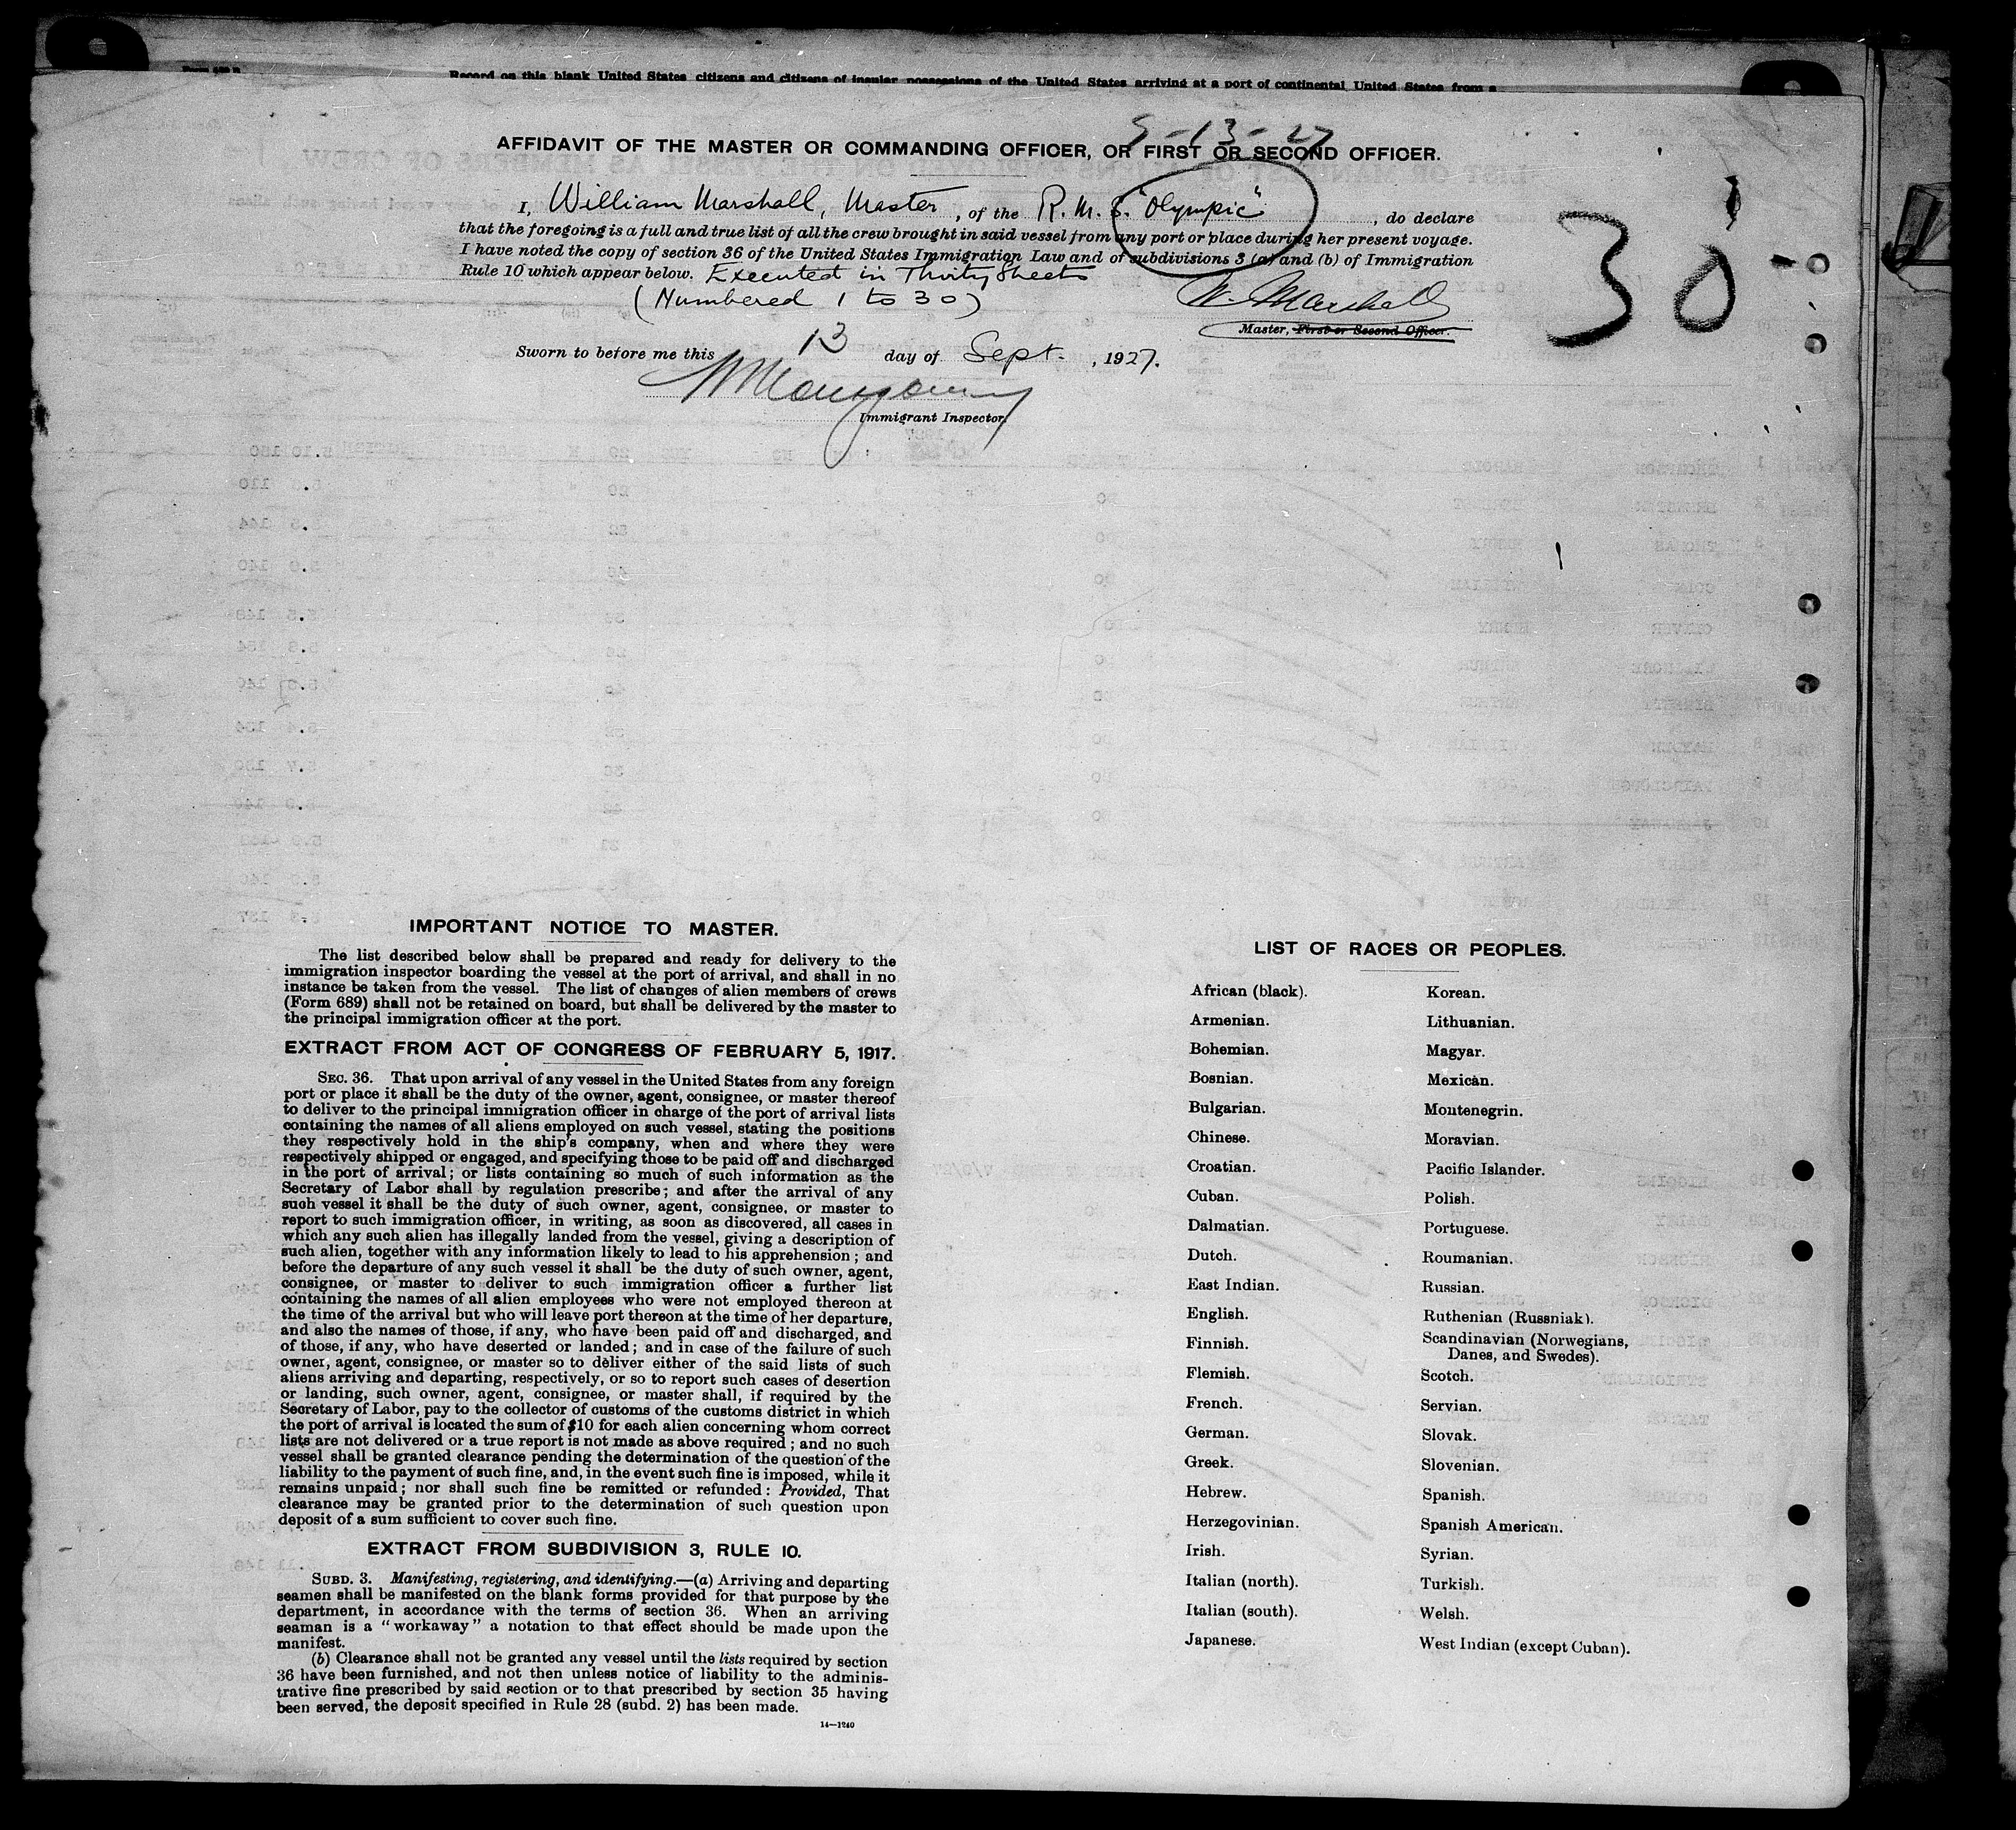 Record on this blank United States citizens and citizens of insular possessions of the United States arriving at a port of continental United States from a
9-13-27
AFFIDAVIT OF THE MASTER OR COMMANDING OFFICER, OR FIRST OR SECOND OFFICER.
I, William Marshall, Master, of the R.M.S. "Olympic", do declare
that the foregoing is a full and true list of all the crew brought in said vessel from any port or place during her present voyage.
I have noted the copy of section 36 of the United States Immigration Law and of subdivisions 3 (a) and (b) of Immigration
Rule 10 which appear below. Executed in Thirty Sheets
(Numbered 1 to 30)
30
W. Marshall
Master, First or Second Officer.
Sworn to before me this 13 day of Sept., 1927.
Immigrant Inspector.
IMPORTANT NOTICE TO MASTER.
The list described below shall be prepared and ready for delivery to the
immigration inspector boarding the vessel at the port of arrival, and shall in no
instance be taken from the vessel. The list of changes of alien members of crews
(Form 689) shall not be retained on board, but shall be delivered by the master to
the principal immigration officer at the port.
EXTRACT FROM ACT OF CONGRESS OF FEBRUARY 5, 1917.
SEC. 36. That upon arrival of any vessel in the United States from any foreign
port or place it shall be the duty of the owner, agent, consignee, or master thereof
to deliver to the principal immigration officer in charge of the port of arrival lists
containing the names of all aliens employed on such vessel, stating the positions
they respectively hold in the ship's company, when and where they were
respectively shipped or engaged, and specifying those to be paid off and discharged
in the port of arrival; or lists containing so much of such information as the
Secretary of Labor shall by regulation prescribe; and after the arrival of any
such vessel it shall be the duty of such owner, agent, consignee, or master to
report to such immigration officer, in writing, as soon as discovered, all cases in
which any such alien has illegally landed from the vessel, giving a description of
such alien, together with any information likely to lead to his apprehension; and
before the departure of any such vessel it shall be the duty of such owner, agent,
consignee, or master to deliver to such immigration officer a further list
containing the names of all alien employees who were not employed thereon at
the time of the arrival but who will leave port thereon at the time of her departure,
and also the names of those, if any, who have been paid off and discharged, and
of those, if any, who have deserted or landed; and in case of the failure of such
owner, agent, consignee, or master so to deliver either of the said lists of such
aliens arriving and departing, respectively, or so to report such cases of desertion
or landing, such owner, agent, consignee, or master shall, if required by the
Secretary of Labor, pay to the collector of customs of the customs district in which
the port of arrival is located the sum of $10 for each alien concerning whom correct
lists are not delivered or a true report is not made as above required; and no such
vessel shall be granted clearance pending the determination of the question of the
liability to the payment of such fine, and, in the event such fine is imposed, while it
remains unpaid; nor shall such fine be remitted or refunded: Provided, That
clearance may be granted prior to the determination of such question upon
deposit of a sum sufficient to cover such fine.
EXTRACT FROM SUBDIVISION 3, RULE 10.
SUBD. 3. Manifesting, registering, and identifying.—(a) Arriving and departing
seamen shall be manifested on the blank forms provided for that purpose by the
department, in accordance with the terms of section 36. When an arriving
seaman is a "workaway" a notation to that effect should be made upon the
manifest.
(b) Clearance shall not be granted any vessel until the lists required by section
36 have been furnished, and not then unless notice of liability to the adminis-
trative fine prescribed by said section or to that prescribed by section 35 having
been served, the deposit specified in Rule 28 (subd. 2) has been made.
14—1240
LIST OF RACES OR PEOPLES.
African (black).
Armenian.
Bohemian.
Bosnian.
Bulgarian.
Chinese.
Croatian.
Cuban.
Dalmatian.
Dutch.
East Indian.
English.
Finnish.
Flemish.
French.
German.
Greek.
Hebrew.
Herzegovinian.
Irish.
Italian (north).
Italian (south).
Japanese.
Korean.
Lithuanian.
Magyar.
Mexican.
Montenegrin.
Moravian.
Pacific Islander.
Polish.
Portuguese.
Roumanian.
Russian.
Ruthenian (Russniak).
Scandinavian (Norwegians,
Danes, and Swedes).
Scotch.
Servian.
Slovak.
Slovenian.
Spanish.
Spanish American.
Syrian.
Turkish.
Welsh.
West Indian (except Cuban).